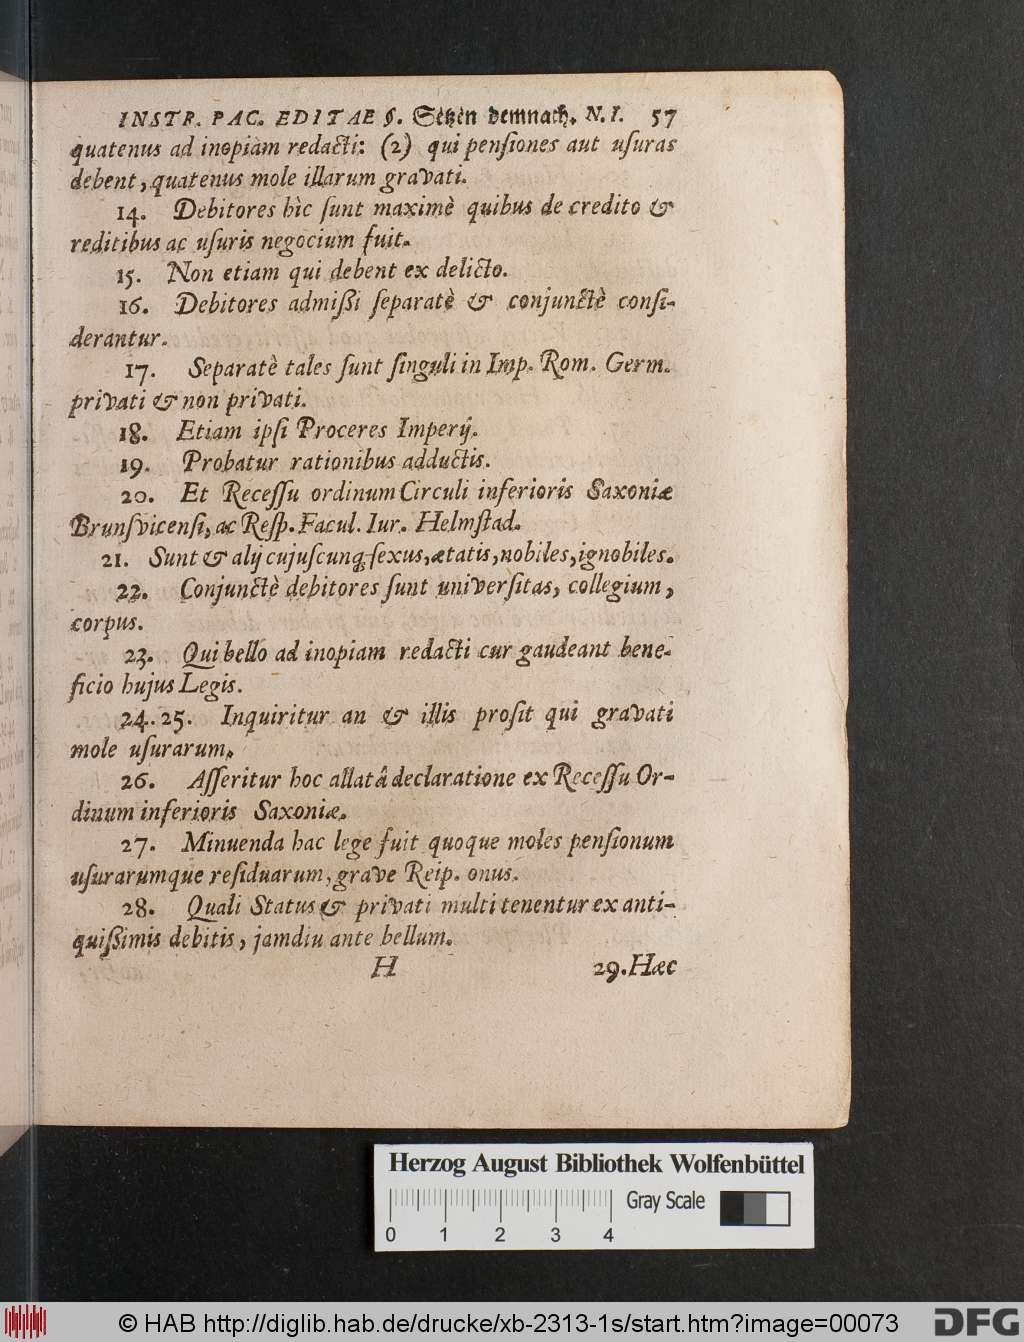 INSTR. PAC. EDITAE §. Setzen demnach. N. I. 57
quatenus ad inopiam redacti: (2) qui pensiones aut usuras
debent, quatenus mole illarum gravati.
14. Debitores hìc sunt maximè quibus de credito &
reditibus ac usuris negocium fuit.
15. Non etiam qui debent ex delicto.
16. Debitores admißi separatè & conjunctè consi-
derantur.
17. Separatè tales sunt singuli in Imp. Rom. Germ.
privati & non privati.
18. Etiam ipsi Proceres Imperij.
19. Probatur rationibus adductis.
20. Et Recessu ordinum Circuli inferioris Saxoniæ
Brunsvicensi, ac Resp. Facul. Iur. Helmstad.
21. Sunt & alij cujuscunq; sexus, ætatis, nobiles, ignobiles.
22. Conjunctè debitores sunt universitas, collegium,
corpus.
23. Qui bello ad inopiam redacti cur gaudeant bene-
ficio hujus Legis.
24. 25. Inquiritur an & illis prosit qui gravati
mole usurarum.
26. Asseritur hoc allatâ declaratione ex Recessu Or-
dinum inferioris Saxoniæ.
27. Minuenda hac lege fuit quoque moles pensionum
usurarumque residuarum, grave Reip. onus.
28. Quali Status & privati multi tenentur ex anti-
quißimis debitis, jamdiu ante bellum.
H 29. Hæc
Herzog August Bibliothek Wolfenbüttel
Gray Scale
0 1 2 3 4
© HAB http://diglib.hab.de/drucke/xb-2313-1s/start.htm?image=00073
DFG